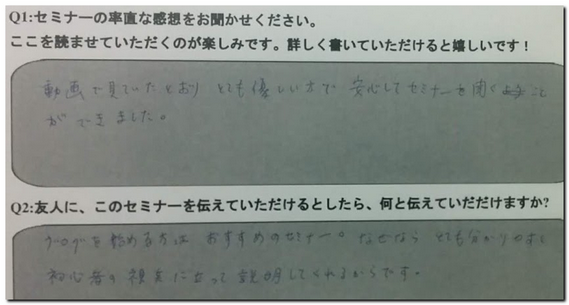 Q1:セミナーの率直な感想をお聞かせください。
ここを読ませていただくのが楽しみです。詳しく書いていただけると嬉しいです！
動画で見ていたとおり とても優しい方で 安心してセミナーを聞くこと
ができました。
Q2:友人に、このセミナーを伝えていただけるとしたら、何と伝えていだだけますか?
ブログを始める方は おすすめのセミナー。なぜなら とても分かりやすく
初心者の視点に立って説明してくれるからです。